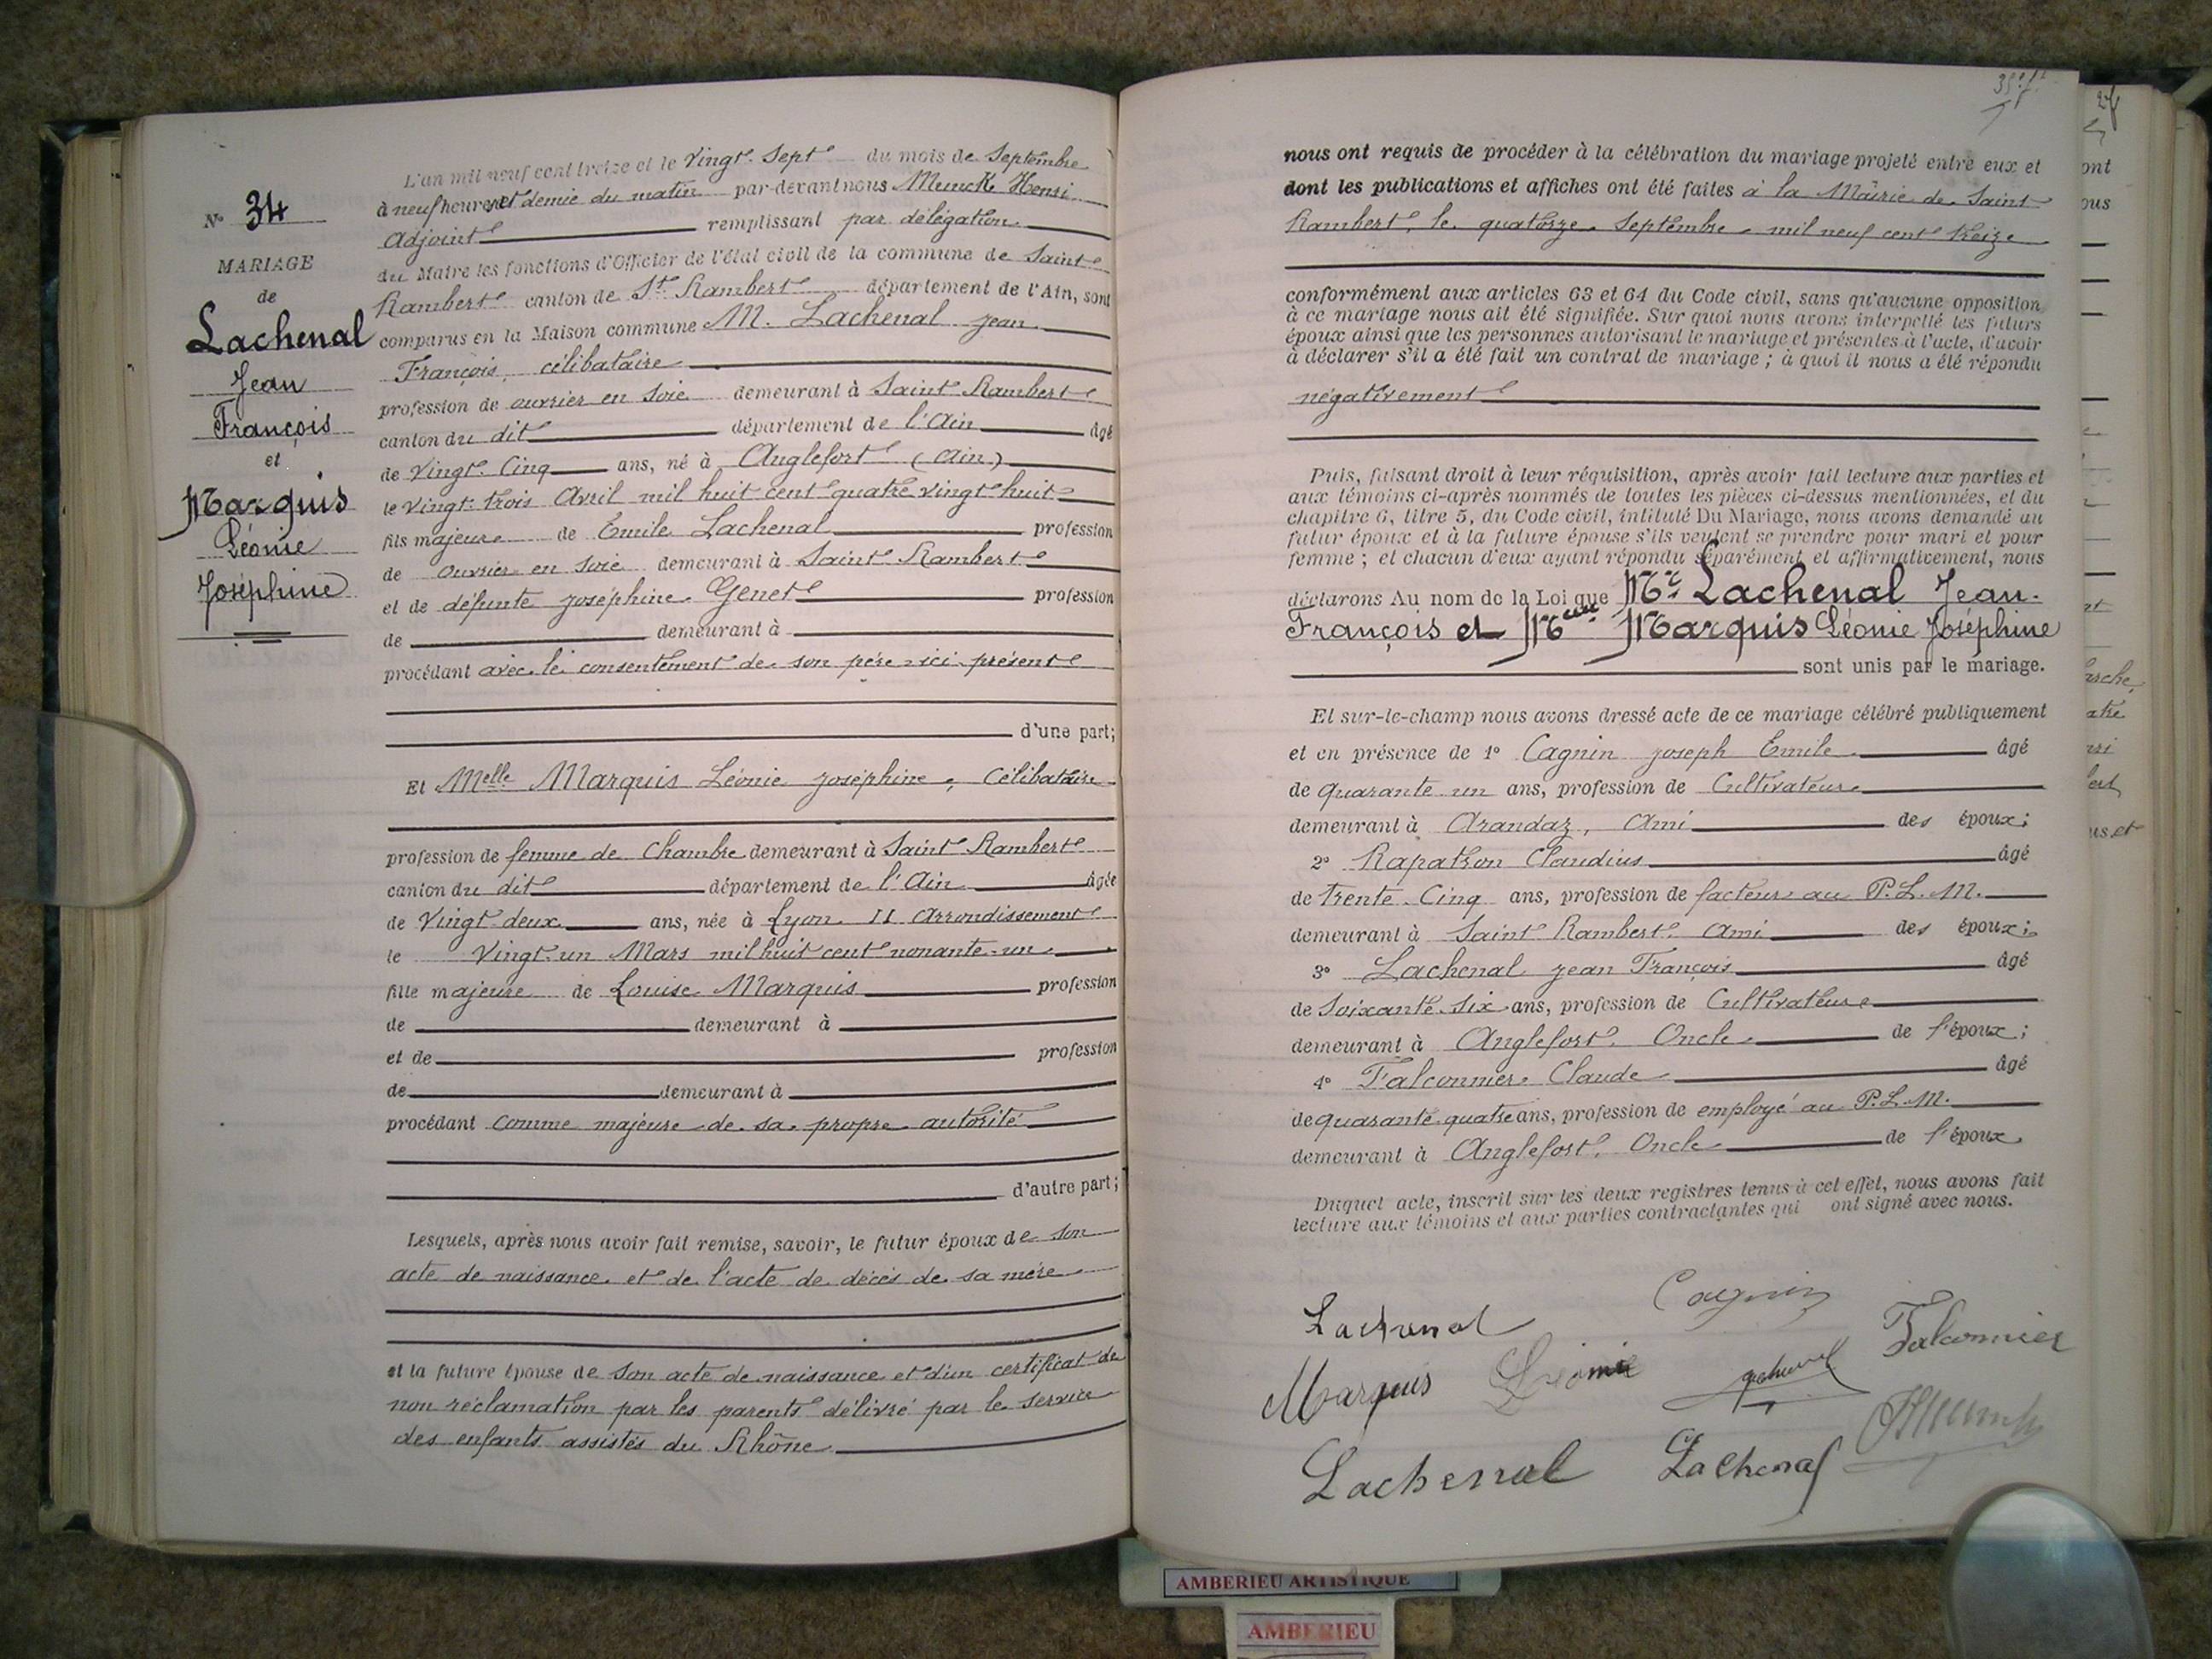 N° 34
MARIAGE
de
Lachenal
Jean
François
et
Marquis
Léonie
Joséphine
L'an mil neuf cent treize et le Vingt. Sept du mois de Septembre
à neuf heures et demie du matin par-devant nous Munck Henri
Adjoint remplissant par délégation
du Maire les fonctions d'Officier de l'état civil de la commune de Saint
Rambert canton de St. Rambert département de l'Ain, sont
comparus en la Maison commune M. Lachenal Jean
François, célibataire
profession de ouvrier en Soie demeurant à Saint Rambert
canton du dit département de l'Ain âgé
de Vingt. Cinq ans, né à Anglefort (Ain)
le Vingt. trois Avril mil huit cent quatre vingt huit
fils majeur de Emile Lachenal profession
de ouvrier en Soie demeurant à Saint Rambert
et de défunte Joséphine Genet profession
de demeurant à
procédant avec le consentement de son père ici présent
d'une part;
Et Melle Marquis Léonie Joséphine, Célibataire
profession de femme de Chambre demeurant à Saint Rambert
canton du dit département de l'Ain âgée
de Vingt deux ans, née à Lyon II Arrondissement
le Vingt. un Mars mil huit cent nonante-un
fille majeure de Louise Marquis profession
de demeurant à
et de profession
de demeurant à
procédant comme majeure de sa propre autorité
d'autre part;
Lesquels, après nous avoir fait remise, savoir, le futur époux de son
acte de naissance et de l'acte de décès de sa mère
et la future épouse de son acte de naissance et d'un certificat de
non réclamation par les parents délivré par le service
des enfants assistés du Rhône
nous ont requis de procéder à la célébration du mariage projeté entre eux et
dont les publications et affiches ont été faites à la Mairie de Saint
Rambert, le quatorze Septembre mil neuf cent treize
conformément aux articles 63 et 64 du Code civil, sans qu'aucune opposition
à ce mariage nous ait été signifiée. Sur quoi nous avons interpellé les futurs
époux ainsi que les personnes autorisant le mariage et présentes à l'acte, d'avoir
à déclarer s'il a été fait un contrat de mariage ; à quoi il nous a été répondu
négativement
Puis, faisant droit à leur réquisition, après avoir fait lecture aux parties et
aux témoins ci-après nommés de toutes les pièces ci-dessus mentionnées, et du
chapitre 6, titre 5, du Code civil, intitulé Du Mariage, nous avons demandé au
futur époux et à la future épouse s'ils veulent se prendre pour mari et pour
femme ; et chacun d'eux ayant répondu séparément et affirmativement, nous
déclarons Au nom de la Loi que Mr. Lachenal Jean.
François et Melle Marquis Léonie Joséphine
sont unis par le mariage.
Et sur-le-champ nous avons dressé acte de ce mariage célébré publiquement
et en présence de 1° Cagnin Joseph Emile âgé
de quarante un ans, profession de Cultivateur
demeurant à Arandaz, Ami des époux;
2° Rapatron Claudius âgé
de trente. Cinq ans, profession de facteur au P.L.M.
demeurant à Saint Rambert. Ami des époux;
3° Lachenal Jean François âgé
de Soixante. Six ans, profession de Cultivateur
demeurant à Anglefort. Oncle de l'époux;
4° Falconnier Claude âgé
de quarante. quatre ans, profession de employé au P.L.M.
demeurant à Anglefort. Oncle de l'époux
Duquel acte, inscrit sur les deux registres tenus à cet effet, nous avons fait
lecture aux témoins et aux parties contractantes qui ont signé avec nous.
Lachenal
Cagnin
Falconnier
Marquis Léonie
Lachenal
Lachenal
AMBERIEU ARTISTIQUE
AMBERIEU